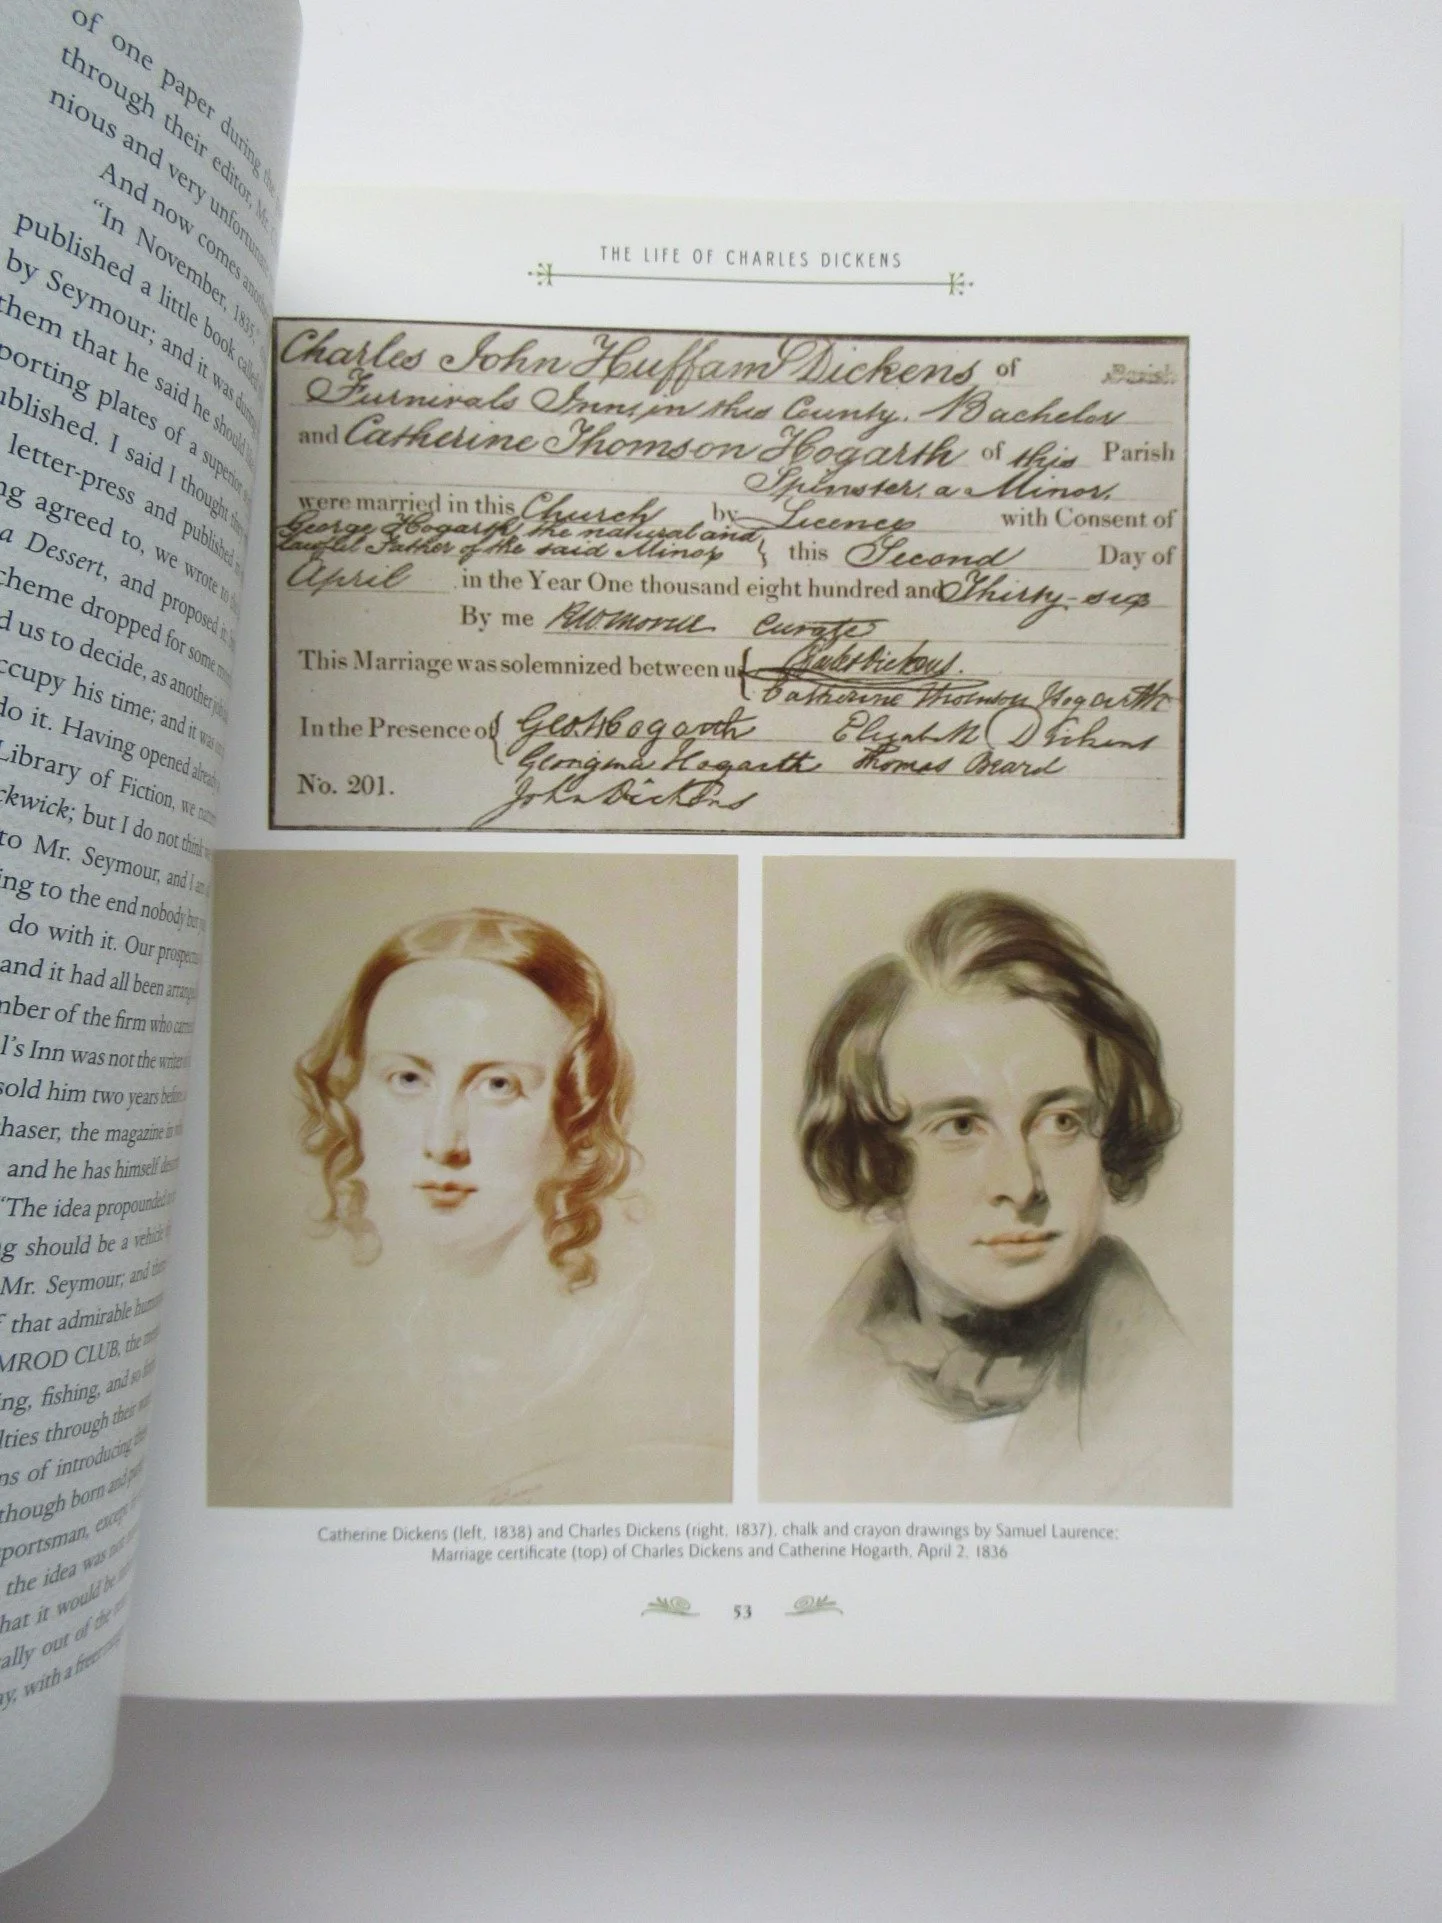 of one paper during the
through their editor, Mr.
nious and very unfortunate
And now comes another
"In November, 1835,
published a little book called
by Seymour; and it was during
them that he said he should like
porting plates of a superior
ublished. I said I thought
letter-press and published
ng agreed to, we wrote to
a Dessert, and proposed it.
cheme dropped for some
d us to decide, as another
ccupy his time; and it was
do it. Having opened already
Library of Fiction, we
ckwick; but I do not think
to Mr. Seymour, and I am
ing to the end nobody
do with it. Our prospectus
and it had all been arranged
mber of the firm who
l's Inn was not the writer
sold him two years before
haser, the magazine in
and he has himself
"The idea propounded
g should be a vehicle
Mr. Seymour; and
f that admirable
MROD CLUB, the
ing, fishing, and so
lties through their
ns of introducing
though born and
portsman, except
the idea was not
hat it would be
ally out of the
ay, with a
THE LIFE OF CHARLES DICKENS
Charles John Huffam Dickens of Parish
Furnivals Inn, in this County, Bachelor
and Catherine Thomson Hogarth of this Parish
Spinster, a Minor,
were married in this Church by Licence with Consent of
George Hogarth, the natural and
Lawful Father of the said Minor this Second Day of
April in the Year One thousand eight hundred and Thirty-six
By me Curate
This Marriage was solemnized between us Charles Dickens.
Catherine Thomson Hogarth
In the Presence of Geo. Hogarth Elizabeth Dickens
Georgina Hogarth Thomas Beard
No. 201. John Dickens
Catherine Dickens (left, 1838) and Charles Dickens (right, 1837), chalk and crayon drawings by Samuel Laurence;
Marriage certificate (top) of Charles Dickens and Catherine Hogarth, April 2, 1836
53